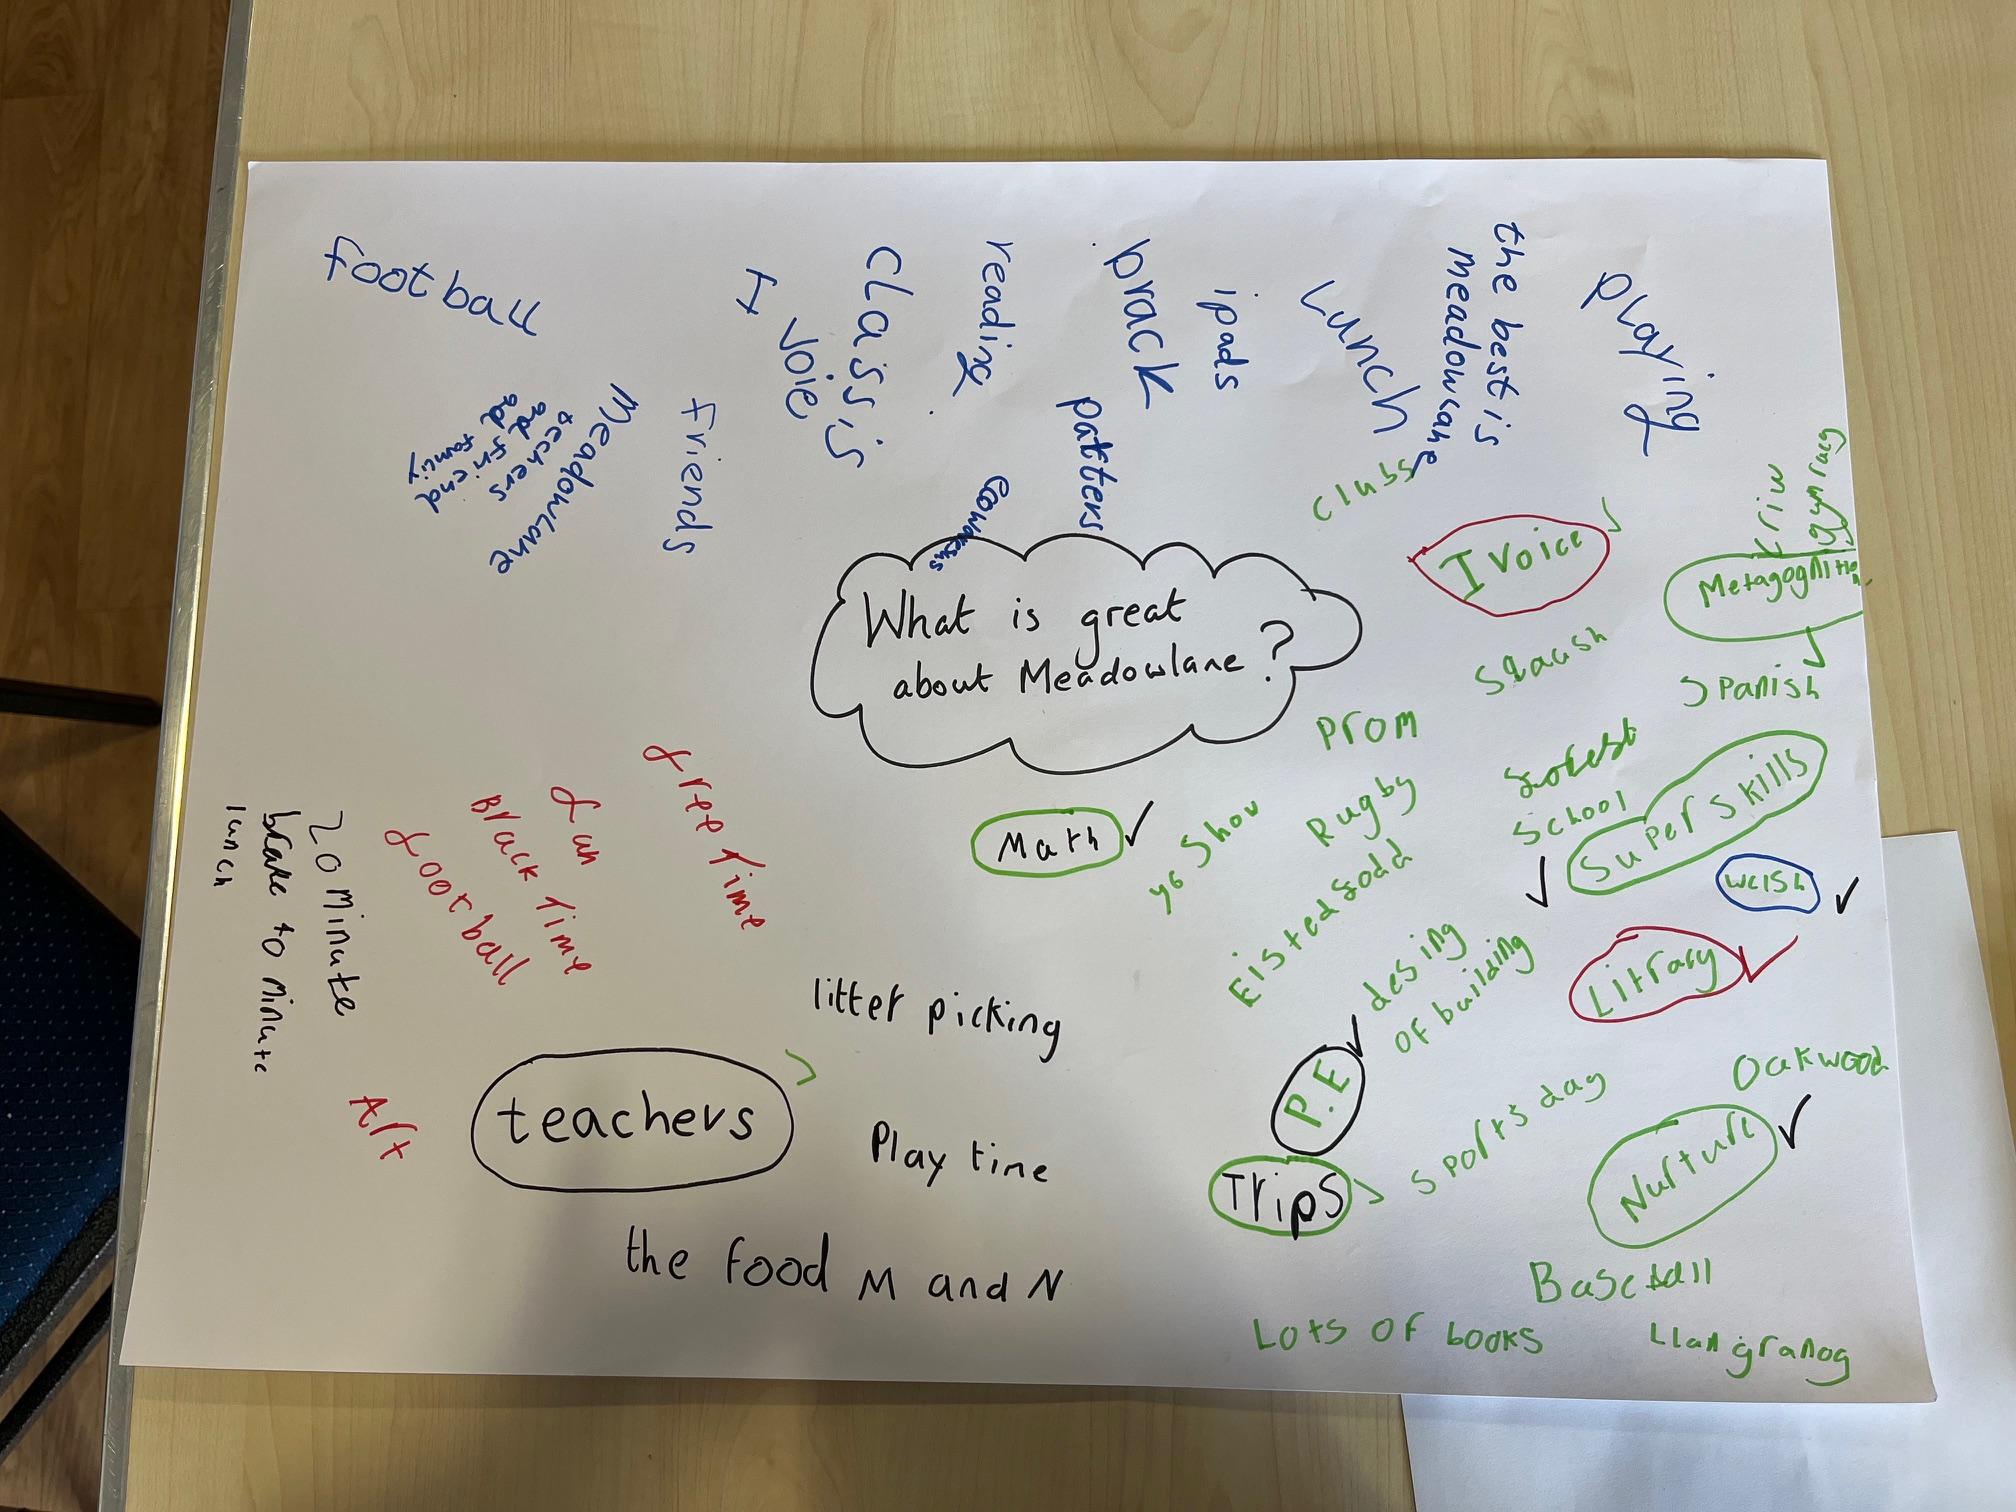 What is great
about Meadowlane?
football
I voie
class is
reading
brack
ipads
Lunch
the best is
meadowlane
playing
patters
friends
Meadowlane
techers
ad friend
ad family
clubs
I voice
Metagognition
Squash
Spanish
Prom
forest
School
Super skills
Rugby
y6 Show
Math
Eistedfodd
welsh
Litracy
desing
of building
P.E
Trips
Sports day
Oakwood
Nurture
Baseball
Lots of books
Llangranog
free Time
fun
Brack Time
football
20 minute
brake to minute
lunch
Art
litter picking
teachers
Play time
the food M and N